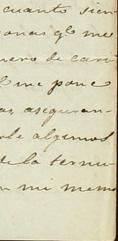 cuanto sien
onas qe me
nero de cari
l me pone
as aseguran-
ole algunos
de la ternu
n mi memo